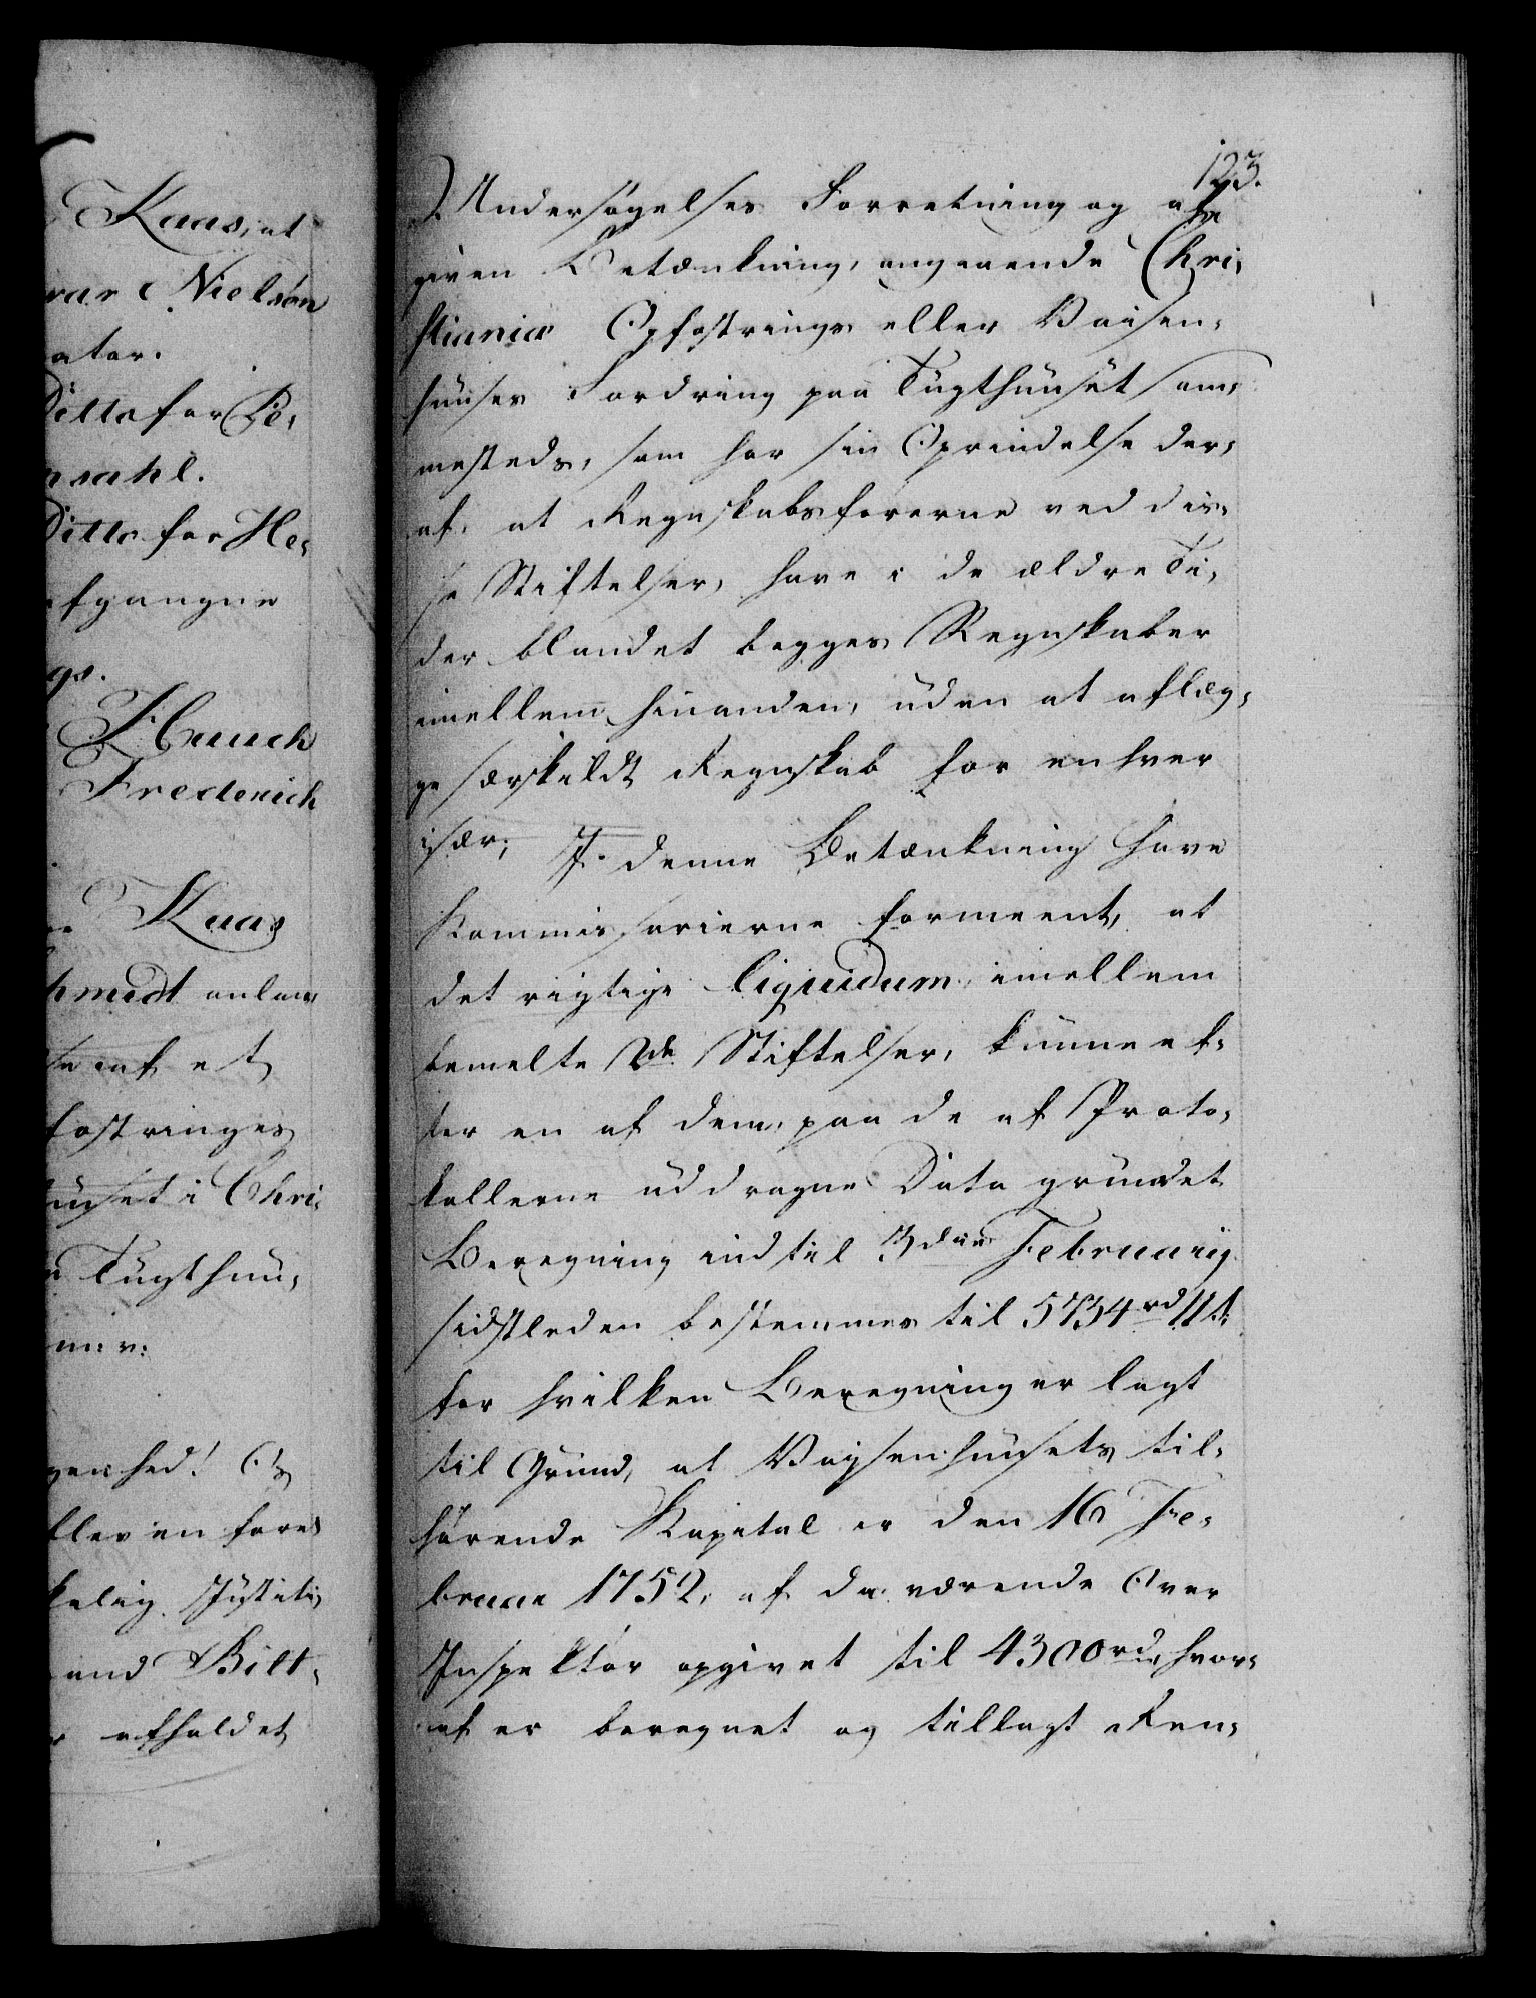 Kaas, at
var Nielsøn
ator.
Ditto for Pe,
nsahl.
Ditto for He,
afgangne
gs.
Hauch
Frederich
Kaas
hmidt anlan,
se af et
fostringes
huset i Chri,
Tugthuu,
nn: v:
genhed! Os
blev en fore,
kelig Justiti,
and Bilt,
afholdet
123.
Undersøgelses Forretning og af,,
given Betænkning, angaaende Chri,
stianiæ Opfostrings eller Vaisen,
huuses Fordring paa Tugthuuset sam,
mesteds, som har sin Oprindelse der,
af, at Regnskabsførerne ved dis,
se Stiftelser, have i de ældre Ti,
der blandet begges Regnskaber
imellem hinanden, uden at aflæg,
ge særskildt Regnskab for enhver
især; I denne Betænkning have
Kommissarierne formeent, at
det rigtige liquidum, imellem
bemelte 2de Stiftelser, kunne ef,
ter en af dem, paa de af Proto,
kollerne uddragne Data grundet
Beregning indtil 3die Februarij
sidstleden bestemmes til 5734rd 11s,
for hvilken Beregning er lagt
til Grund, at Vaysenhuusets til,
hørende Kapital er den 16 Fe,
bruar 1752, af da værende Over
Inspektør opgivet til 4300rd, hvor,
af er beregnet og tillagt Ren,